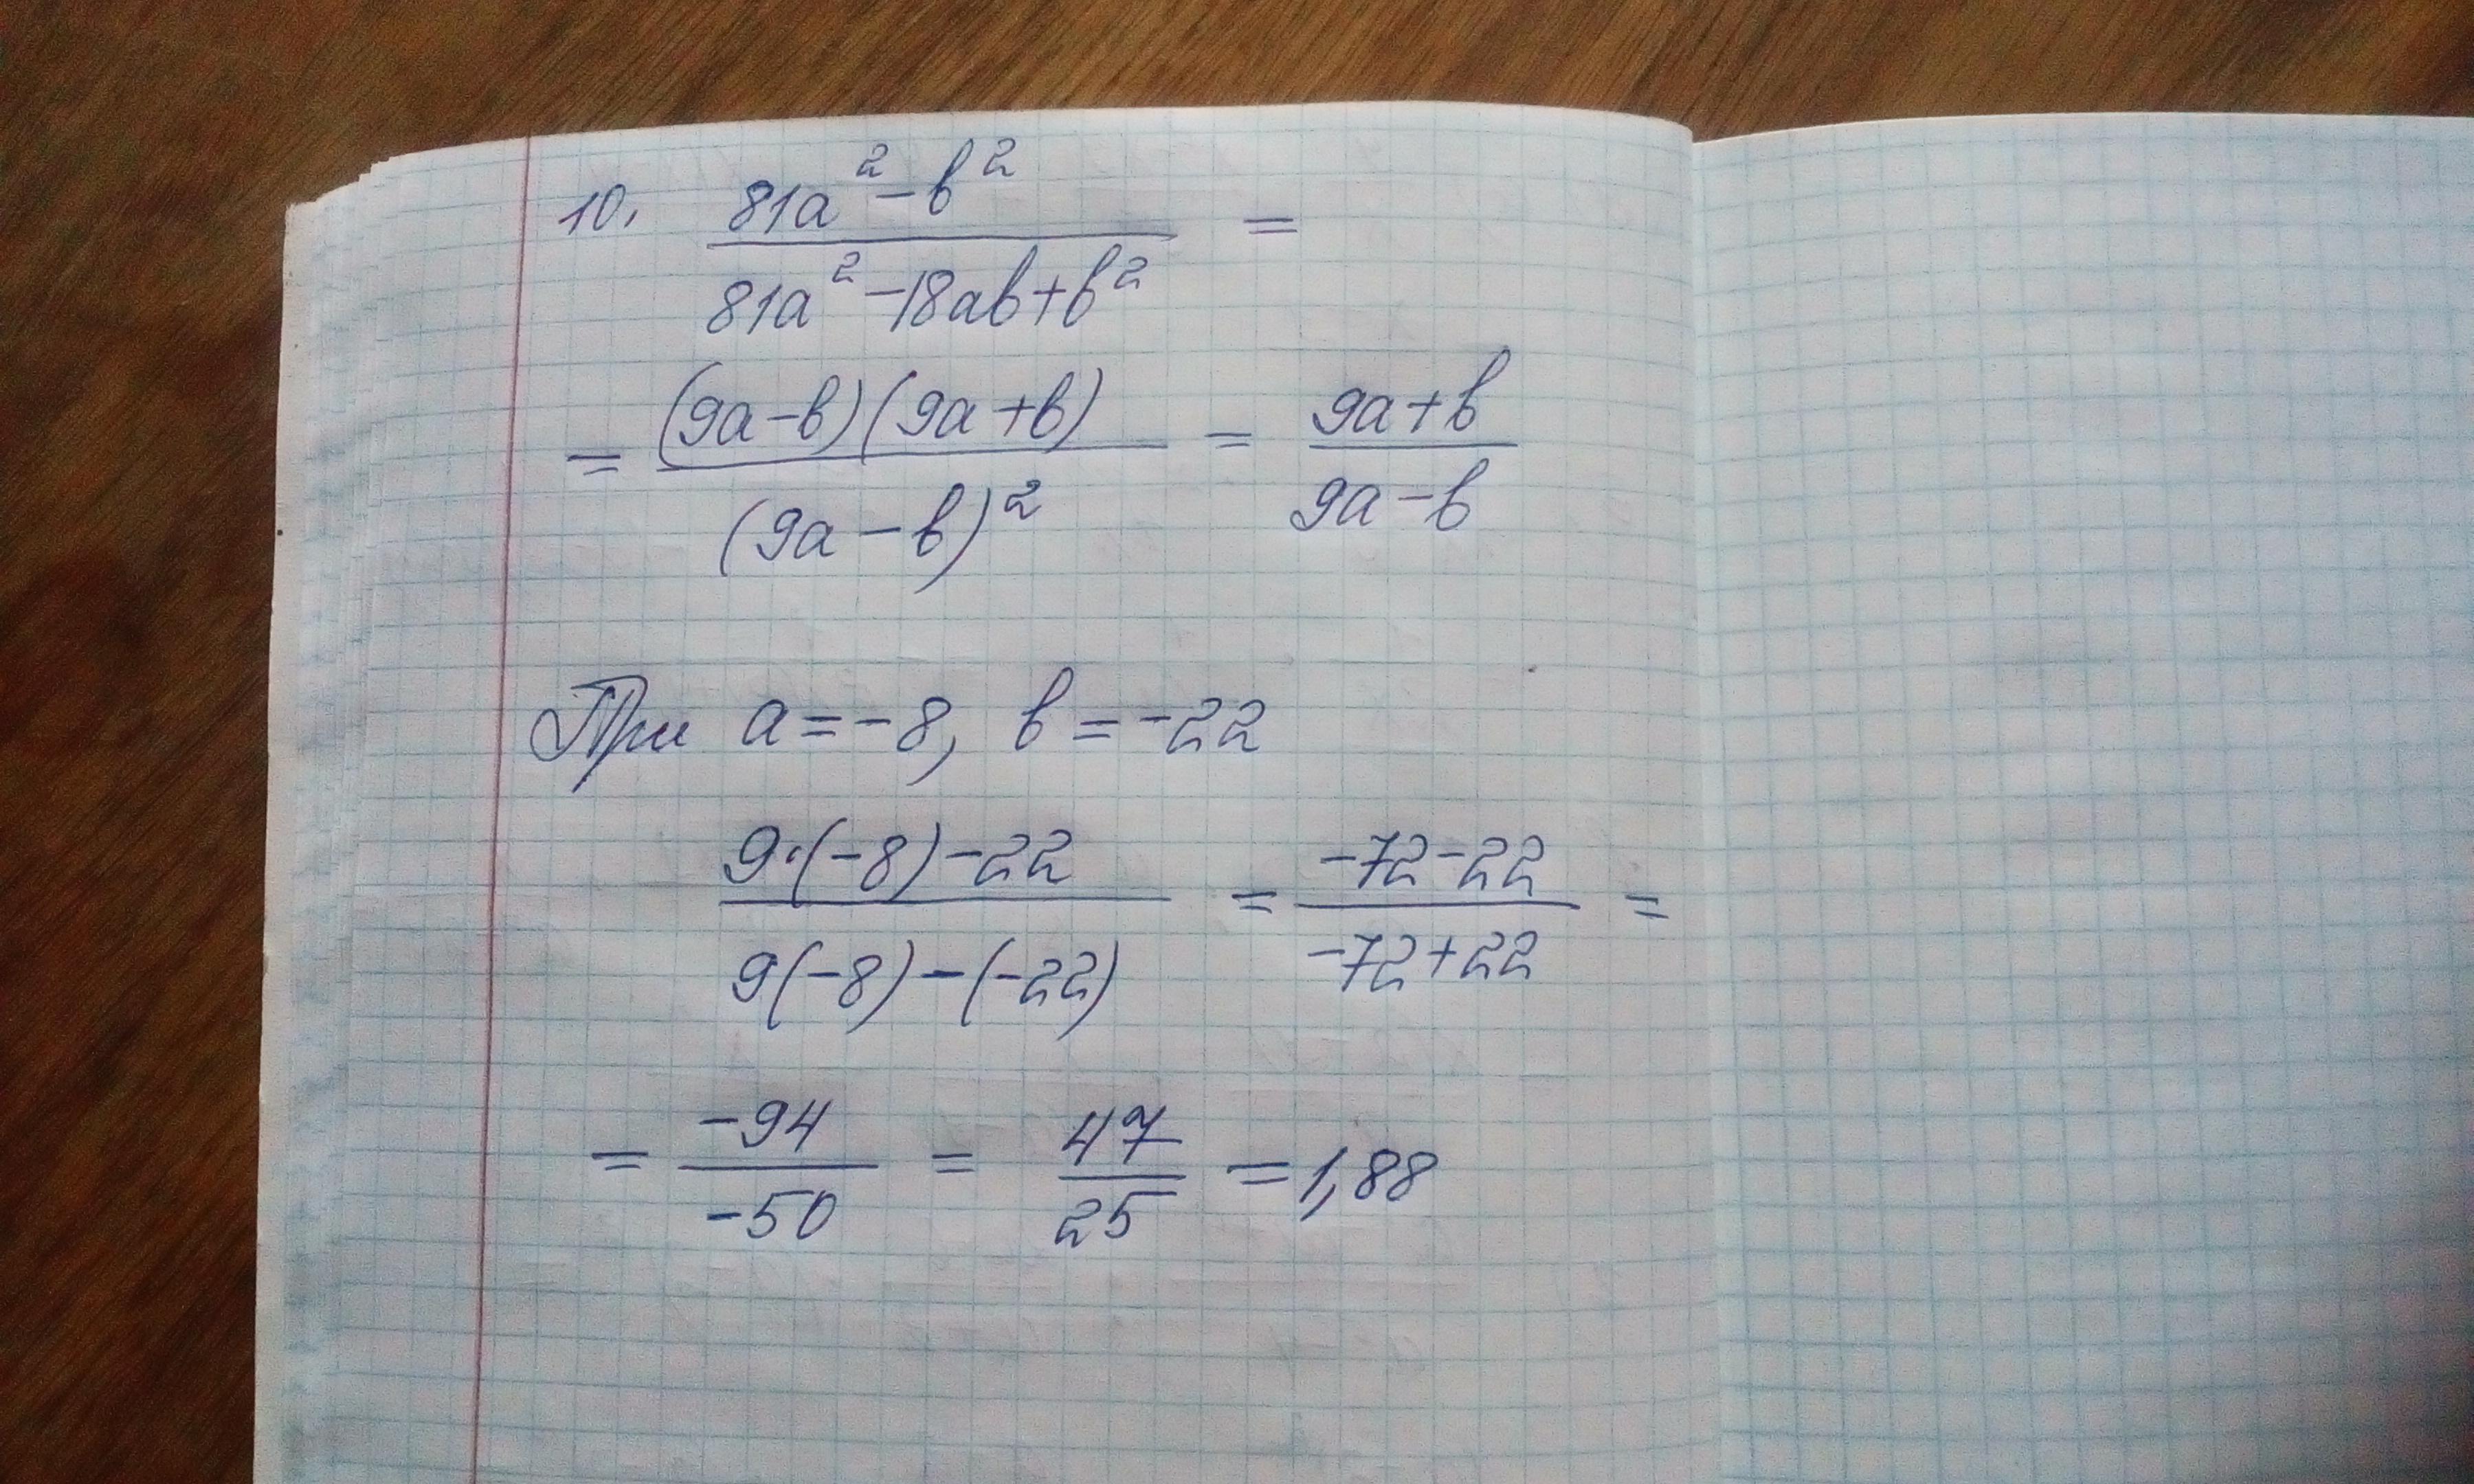 10. (81a² - b²) / (81a² - 18ab + b²) =
= ((9a - b)(9a + b)) / (9a - b)² = (9a + b) / (9a - b)
При a = -8, b = -22
(9·(-8) - 22) / (9(-8) - (-22)) = (-72 - 22) / (-72 + 22) =
= -94 / -50 = 47 / 25 = 1,88